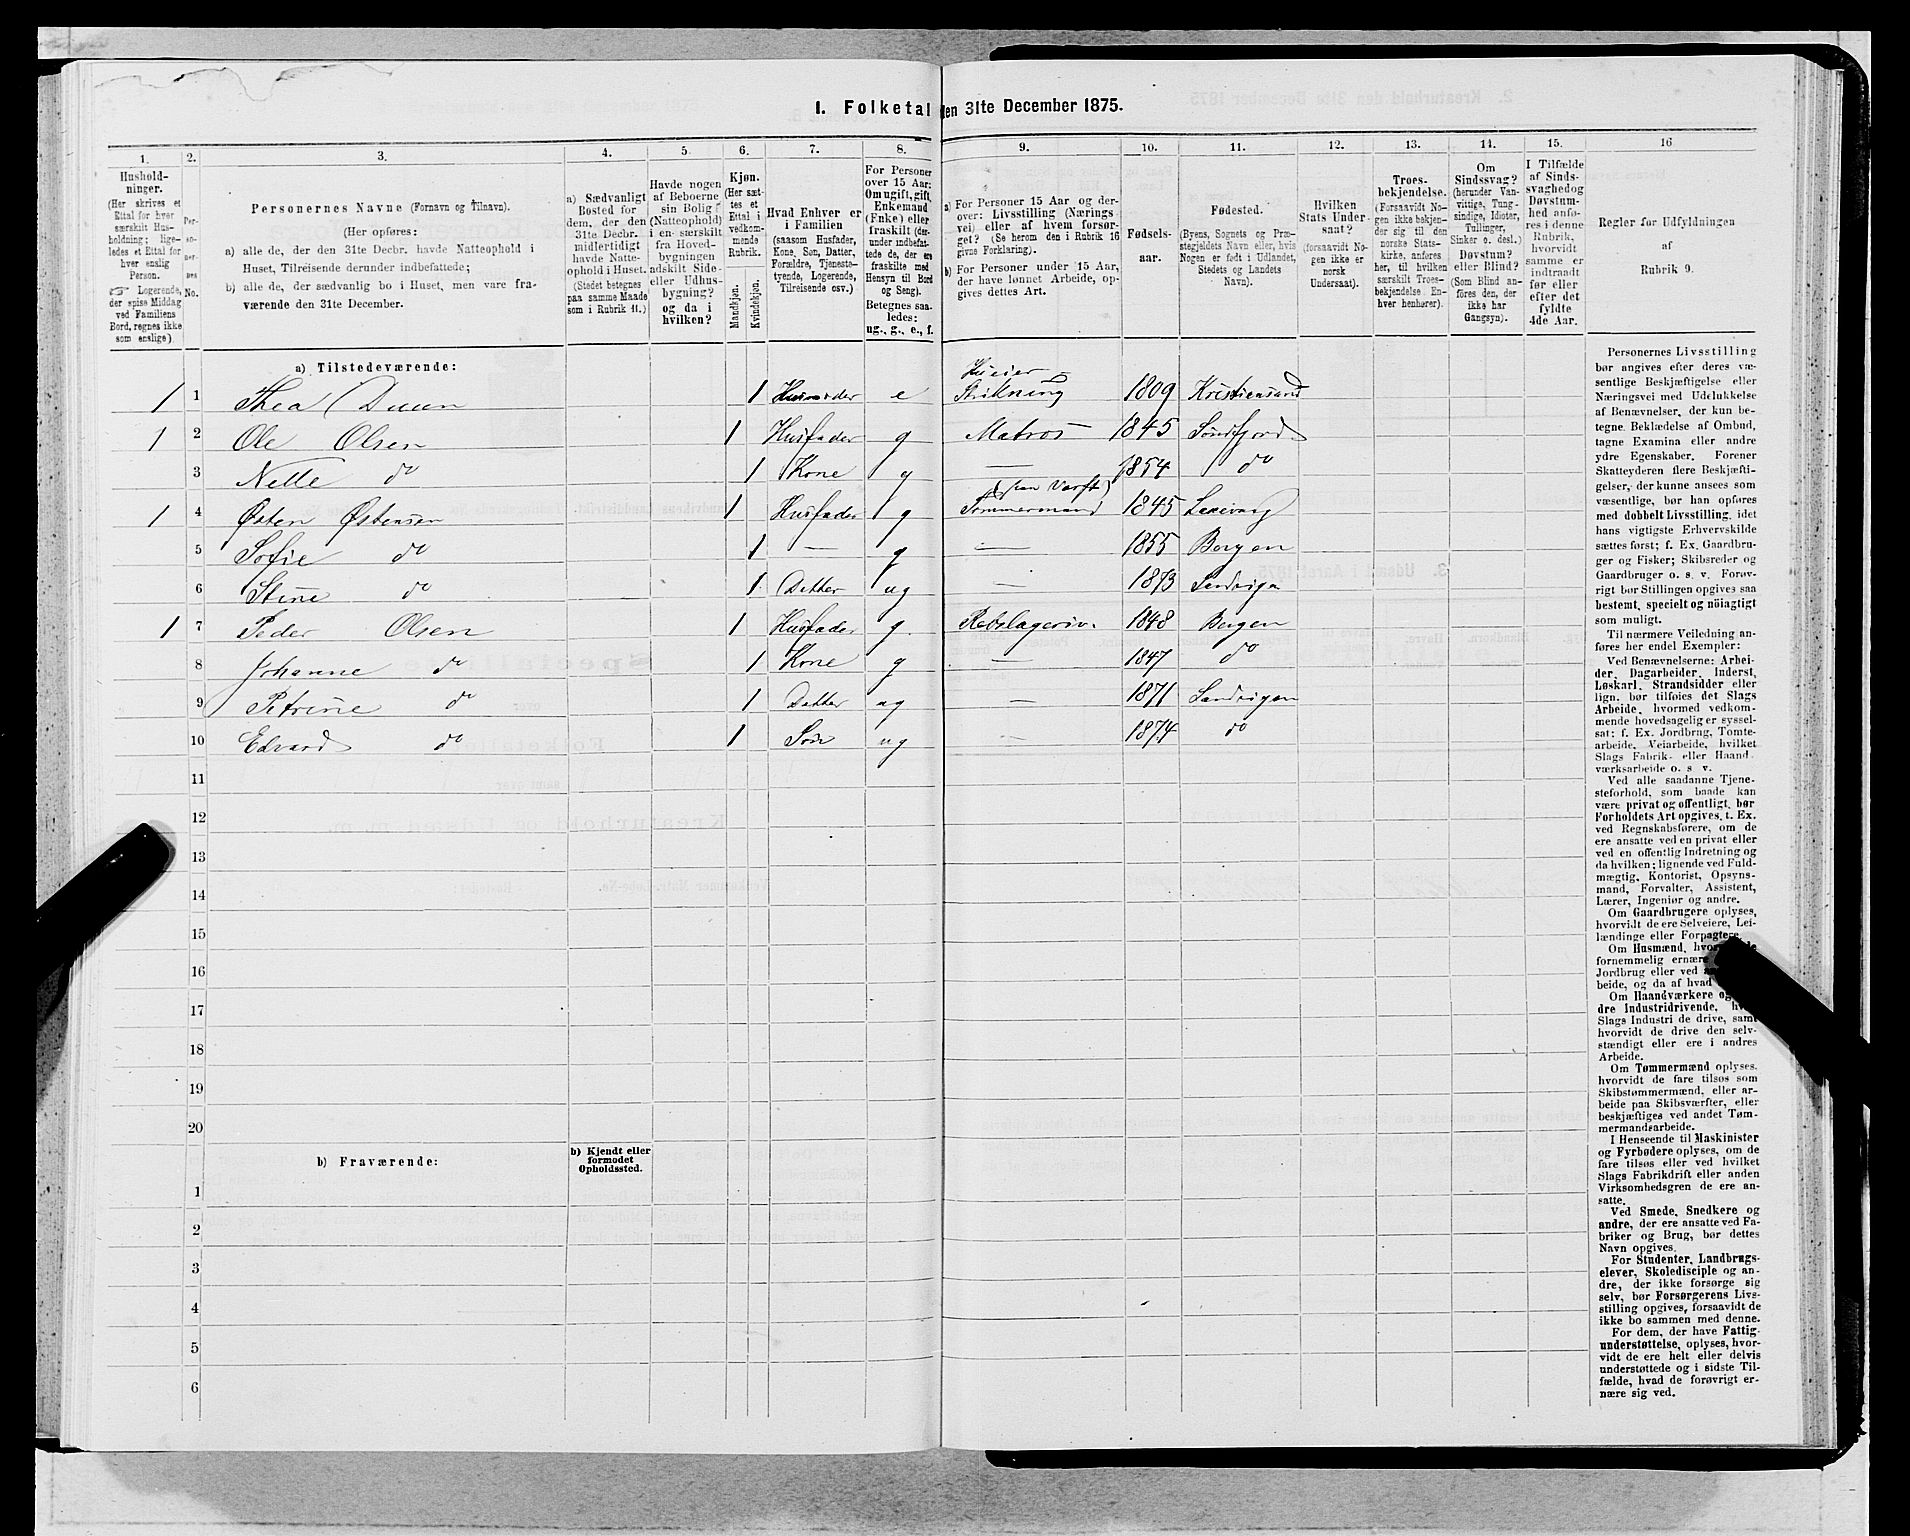 1. Folketal den 31te December 1875.
1.
Hushold-
ninger.
(Her skrives et
Ettal for hver
særskilt Hus-
holdning; lige-
ledes et Ettal for
hver enslig
Person.
☞ Logerende,
der spise Middag
ved Familiens
Bord, regnes ikke
som enslige)
2.
Per-
so-
ner-
nes
No.
3.
Personernes Navne (Fornavn og Tilnavn).
(Her opføres:
a) alle de, der den 31te Decbr. havde Natteophold i
Huset, Tilreisende derunder indbefattede;
b) alle de, der sædvanlig bo i Huset, men vare fra-
værende den 31te December.
4.
a) Sædvanligt
Bosted for
dem, der den
31te Decbr.
midlertidigt
havde Natte-
ophold i Huset.
(Stedet betegnes
paa samme Maade
som i Rubrik 11.)
5.
Havde nogen
af Beboerne
sin Bolig
(Natteophold)
i en særskilt
fra Hoved-
bygningen
adskilt Side-
eller Udhus-
bygning?
og da i
hvilken?
6.
Kjøn.
(Her sæt-
tes et
Ettal i
vedkom-
mende
Rubrik.
Mandkjøn.
Kvindekjøn.
7.
Hvad Enhver er
i Familien
(saasom Husfader,
Kone, Søn, Datter,
Forældre, Tjeneste-
tyende, Logerende,
Tilreisende osv.)
8.
For Personer
over 15 Aar:
Om ugift, gift,
Enkemand
(Enke) eller
fraskilt (der-
under indbefat-
tede de, der ere
fraskilte med
Hensyn til Bord
og Seng).
Betegnes saa-
ledes:
ug., g., e., f.
9.
a) For Personer 15 Aar og der-
over: Livsstilling (Nærings-
vei) eller af hvem forsør-
get? (Se herom den i Rubrik 16
givne Forklaring).
b) For Personer under 15 Aar,
der have lønnet Arbeide, op-
gives dettes Art.
10.
Fødsels-
aar.
11.
Fødested.
(Byens, Sognets og Præ-
stegjeldets Navn eller, hvis
Nogen er født i Udlandet,
Stedets og Landets
Navn).
12.
Hvilken
Stats Under-
saat?
(forsaavidt No-
gen ikke er
norsk
Undersaat).
13.
Troes-
bekjendelse.
(Forsaavidt No-
gen ikke bekjen-
der sig til den
norske Stats-
kirke, anføres
her, til hvilken
særskilt Troes-
bekjendelse En-
hver henhører).
14.
Om
Sindssvag?
(herunder Van-
vittige, Tung-
sindige, Idioter,
Tullinger,
Sinker o. desl.)
Døvstum?
eller Blind?
(Som Blind an-
føres den, der
ikke har
Gangsyn).
15.
I Tilfælde
af Sinds-
svaghedog
Døvstum-
hed anfø-
res i denne
Rubrik,
hvorvidt
samme er
indtraadt
før eller
efter det
fyldte
4de Aar.
16
Regler for Udfyldningen
af
Rubrik 9.
a) Tilstedeværende:
1 1 Thea Duun 1 e Huseier Strikning 1809 Kristiansand
1 2 Ole Olsen 1 Husfader g Matros 1845 Søndfjord
3 Nelle do 1 Kone g — 1854 do
1 4 Østen Østensen 1 Husfader g Tømmermand 1845
5 Sofie do 1 — g — 1855 Bergen
6 Stine do 1 Datter ug — 1873 Sandvigen
1 7 Peder Olsen 1 Husfader g. 1848 Bergen
8 Johanne do 1 Kone g — 1847 do
9 Petrine do 1 Datter ug — 1871 Sandvigen
10 Edvard do 1 Søn ug — 1874 do
11
12
13
14
15
16
17
18
19
20
b) Fraværende:
b) Kjendt eller
formodet
Opholdssted.
1
2
3
4
5
6
Personernes Livsstilling
bør angives efter deres væ-
sentlige Beskjæftigelse eller
Næringsvei med Udelukkelse
af Benævnelser, der kun be-
tegne Beklædelse af Ombud,
tagne Examina eller andre
ydre Egenskaber. Forener
Skatteyderen flere Beskjæfti-
gelser, der kunne ansees som
væsentlige, bør han opføres
med dobbelt Livsstilling, idet
hans vigtigste Erhvervskilde
sættes først; f. Ex. Gaardbru-
ger og Fisker; Skibsreder og
Gaardbruger o. s. v. Forøv-
rigt bør Stillingen opgives saa
bestemt, specielt og nøiagtigt
som muligt.
Til nærmere Veiledning an-
føres her endel Exempler:
Ved Benævnelserne: Arbei-
der, Dagarbeider, Inderst,
Løskarl, Strandsidder eller
lign. bør tilføies det Slags
Arbeide, hvormed vedkom-
mende hovedsagelig er syssel-
sat: f. Ex. Jordbrug, Tomte-
arbeide, Veiarbeide, hvilket
Slags Fabrik- eller Haand-
værksarbeide o. s. v.
Ved alle saadanne Tjene-
steforhold, som baade kan
være privat og offentligt, bør
Forholdets Art opgives, t. Ex.
ved Regnskabsførere, om de
ere ansatte ved en privat eller
ved en offentlig Indretning og
da hvilken; lignende ved Fuld-
mægtig, Kontorist, Opsyns-
mand, Forvalter, Assistent,
Lærer, Ingeniør og andre.
Om Gaardbrugere oplyses,
hvorvidt de ere Selveiere, Lei-
lændinge eller Forpagtere.
Om Husmænd,
fornemmelig ernære
Jordbrug eller ved
beide, og da af hvad
Om Haandværkere og
dre Industridrivende,
Slags Industri de drive, samt
hvorvidt de drive den selv-
stændigt eller ere i andres
Arbeide.
Om Tømmermænd oplyses,
hvorvidt de fare tilsøs som
Skibstømmermænd, eller ar-
beide paa Skibsværfter, eller
beskjæftiges ved andet Tøm-
mermandsarbeide.
I Henseende til Maskinister
og Fyrbødere oplyses, om de
fare tilsøs eller ved hvilket
Slags Fabrikdrift eller anden
Virksomhedsgren de ere an-
satte.
Ved Smede, Snedkere og
andre, der ere ansatte ved Fa-
briker og Brug, bør dettes
Navn opgives.
For Studenter, Landbrugs-
elever, Skoledisciple og an-
dre, der ikke forsørge sig
selv, bør Forsørgerens Livs-
stilling opgives, forsaavidt de
ikke bo sammen med denne.
For dem, der have Fattig-
understøttelse, oplyses, hvor-
vidt de ere helt eller delvis
understøttede og i sidste Til-
fælde, hvad de forøvrigt er-
nære sig ved.